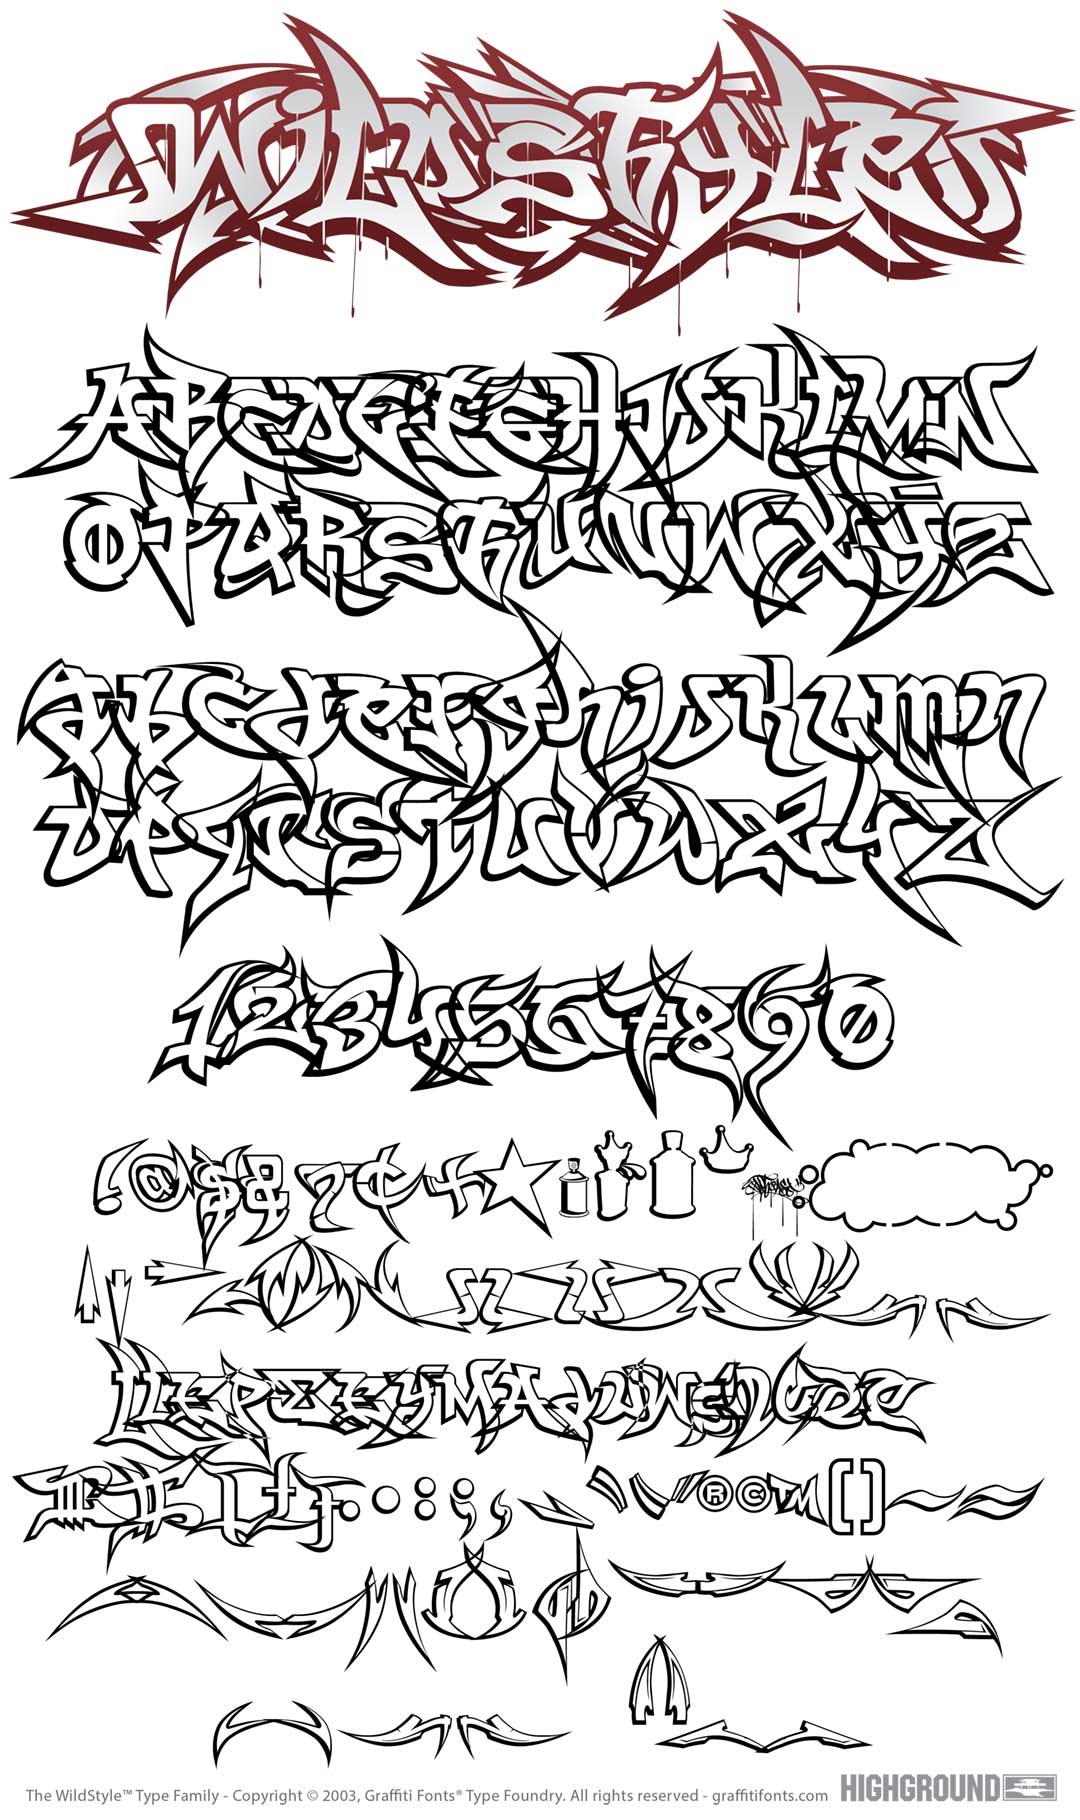 WILDSTYLE
ABCDEFGHIJKLMN
OPQRSTUVWXYZ
abcdefghijklmn
opqrstuvwxyz
1234567890
! @ $ & ? ¢ +
® © TM [ ]
The WildStyle™ Type Family - Copyright © 2003, Graffiti Fonts® Type Foundry. All rights reserved - graffitifonts.com
HIGHGROUND